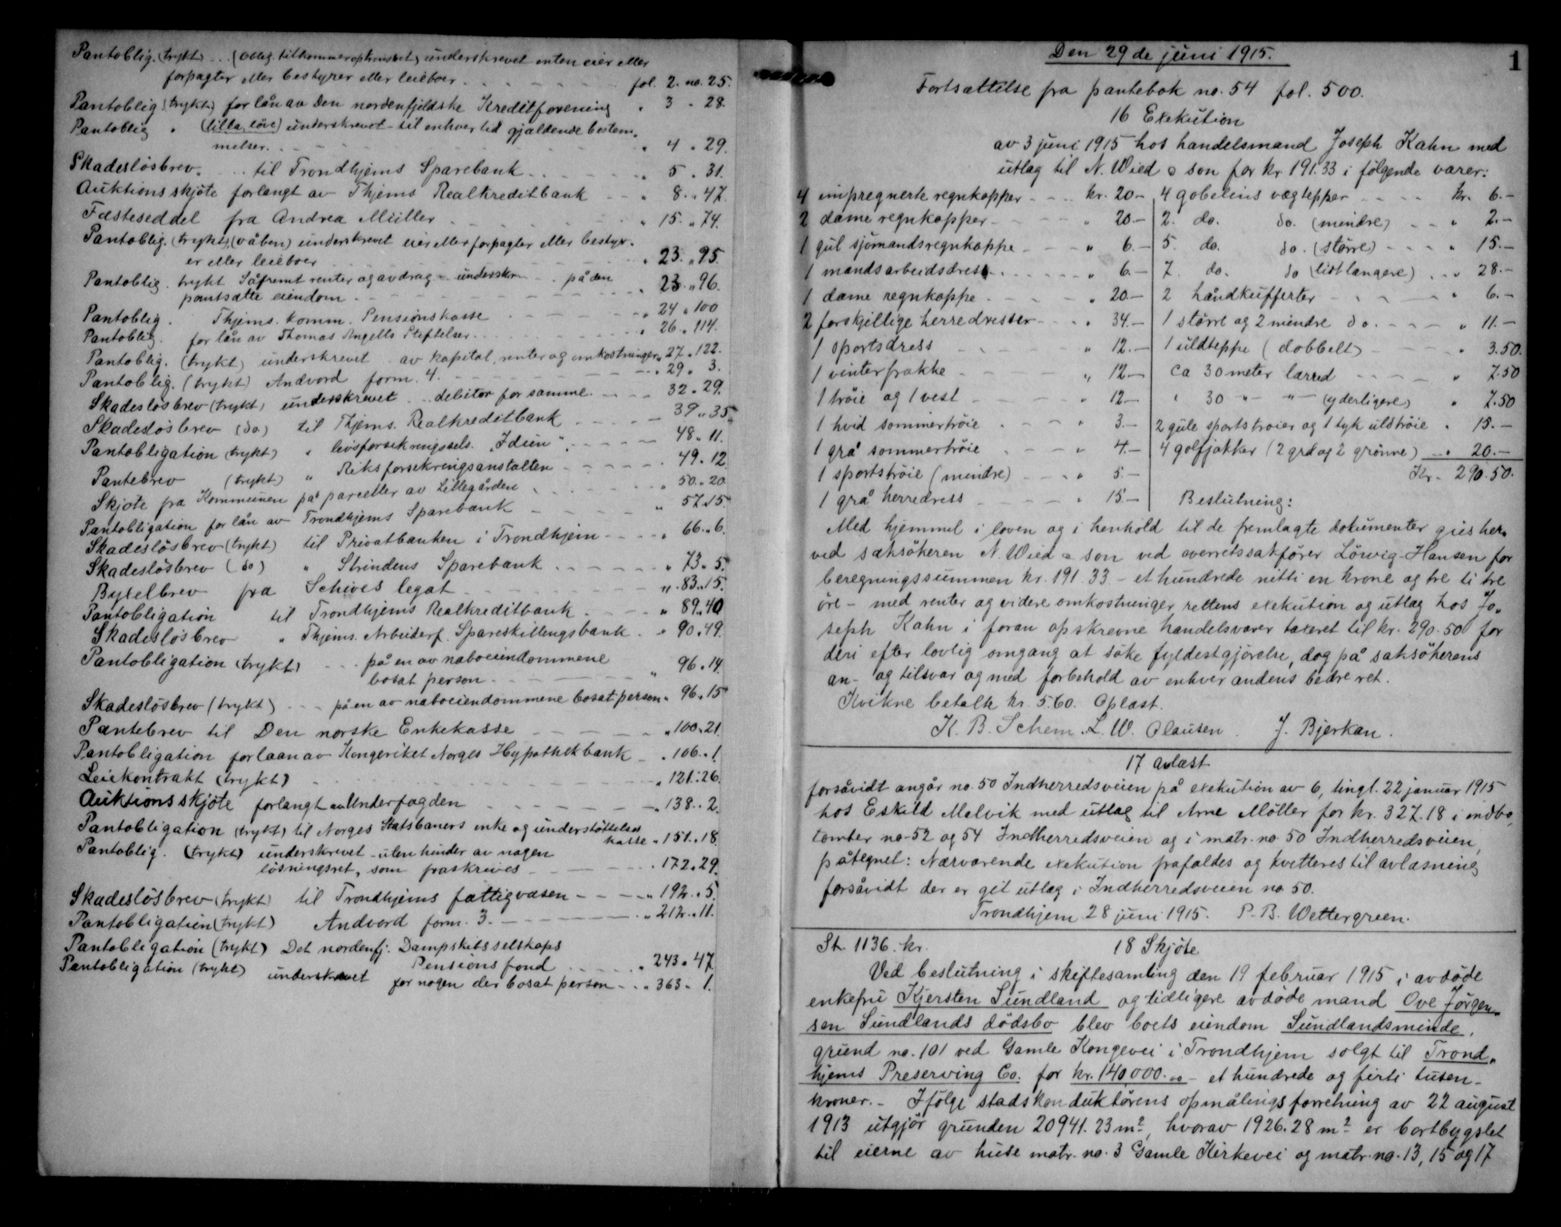 Pantoblig. (trykt) ... underskrevet enten eier eller
forpagter eller bestyrer eller leieboer . . . fol. 2. no. 25.
Pantoblig (trykt) for lån av Den nordenfjeldske Kreditforening " 3 " 28.
Pantoblig " underskrevet - til enhver tid gjældende bestem-
melser. " 4 " 29.
Skadesløsbrev. . . til Trondhjems Sparebank . . . " 5 " 31.
Auktionsskjøte forlangt av Thjems Realkreditbank - - " 8 " 47.
Fæsteseddel fra Andrea Müller . . . " 15 " 74.
Pantoblig. (trykt) (våben) underskrevet eier eller forpagter eller besty-
er eller leieboer . . . " 23 " 95
Pantoblig. trykt Såfremt renter og avdrag - underskr - på den
pantsatte eiendom - - - " 23 " 96.
Pantoblig. Thjems. Komm. Pensionskasse . . . " 24 " 100
Pantoblig. for lån av Thomas Angells Stiftelser. . . " 26 " 114.
Pantoblig. (trykt) underskrevet . av kapital, renter og omkostninger " 27 " 122.
Pantoblig. (trykt) Andvord form. 4. - - - " 29 " 3.
Skadesløsbrev (trykt) underskrevet . . debitor for samme - - 32 " 29.
Skadesløsbrev (do) til Thjems. Realkreditbank - - - 39 " 35
Pantobligation (trykt) " livsforsikringssels. "Idun" - - - 48 " 11.
Pantebrev (trykt) " Riksforsikringsanstalten - - - 49 " 12
Skjøte fra Kommunen på parceller av Lillegården . . . " 50 " 20
Pantobligation for lån av Trondhjems Sparebank - - " 57 " 15
Skadesløsbrev (trykt) til Privatbanken i Trondhjem - - - " 66 " 6.
Skadesløsbrev (do) " Strindens Sparebank - - - " 73 " 5.
Byselbrev fra Schives legat - - - " 83 " 15.
Pantobligation til Trondhjems Realkreditbank - - - " 89 " 40
Skadesløsbrev " Thjems. Arbeiderf. Spareskillingsbank - " 90 " 49.
Pantobligation (trykt) - - - på en av naboeiendommene
bosat person - - - " 96 " 14
Skadesløsbrev (trykt) - - - på en av naboeiendommene bosat person " 96 " 15
Pantebrev til Den norske Enkekasse - - - " 100 " 21
Pantobligation for laan av Kongeriket Norges Hypothekbank - " 106 " 1.
Leiekontrakt (trykt) . . . " 121 " 26.
Auktionsskjøte forlangt av Underfogden - - - " 138 " 2
Pantobligation (trykt) til Norges Statsbaners enke og understøttelses
kasse " 151 " 18.
Pantoblig. (trykt) underskrevet - uten hinder av nogen
løsningsret, som fraskrives - - - " 172 " 29.
Skadesløsbrev (trykt) til Trondhjems fattigvæsen - - - " 192 " 5.
Pantobligation (trykt) Andvord form. 3. - - - " 212 " 11.
Pantobligation (trykt) Det nordenfj. Dampskibsselskaps
Pensionsfond . . . " 243 " 47
Pantobligation (trykt) underskrevet for nogen der bosat person - - " 363 " 1.
1
Den 29de juni 1915.
Fortsættelse fra pantebok no. 54 fol. 500.
16 Exekution
av 3 juni 1915 hos handelsmand Joseph Kahn med
utlæg til N. Wied & søn for kr 191.33 i følgende varer:
4 impregnerte regnkapper - - kr. 20 -
2 dame regnkapper - - " 20 -
1 gul sjømandsregnkappe - - " 6 -
1 mandsarbeidsdress . . . " 6 -
1 dame regnkappe - - " 20 -
2 forskjellige herredresser - - " 34 -
1 sportsdress - - " 12 -
1 vinterfrakke - - " 12 -
1 trøie og 1 vest - - " 12 -
1 hvid sommertrøie - - " 3 -
1 grå sommertrøie - - " 4 -
1 sportstrøie (mindre) - - " 5 -
1 grå herredress - - " 15 -
4 gobelins vægtepper - - kr. 6. -
2 do. do. (mindre) - - " 2. -
5 do. do. (större) - - " 15. -
7 do. do (litt længere) . . " 28. -
2 håndkufferter - - " 6. -
1 större og 2 mindre do. - - " 11. -
1 uldteppe (dobbelt) - - " 3.50.
ca 30 meter lærred - - " 7.50
" 30 " - " - (yderligere) " 7.50
2 gule sportstrøier og 1 tyk uldtrøie " 15. -
4 golfjakker (2 grå og 2 grønne) " 20. -
Kr. 290.50.
Beslutning:
Med hjemmel i loven og i henhold til de fremlagte dokumenter gives her-
ved saksøkeren N. Wied & søn ved overretssakfører Lörwig-Hansen for
beregningssummen kr. 191.33 - et hundrede nitti en krone og tre ti tre
øre - med renter og videre omkostninger rettens exekution og utlæg hos Jo-
seph Kahn i foran opskrevne handelsvarer taxeret til kr. 290.50 for
deri efter lovlig omgang at söke fyldestgjørelse, dog på saksökerens
an- og tilsvar og med forbehold av enhver andens bedre ret.
Kvikne betalt kr. 5.60. Oplæst.
K. B. Schem. L. W. Clausen J. Bjerkan.
17 Avlæst
forsåvidt angår no. 50 Indherredsveien på exekution av 6, tingl. 22 januar 1915
hos Eskild Melvik med utlæg til Arne Möller for kr. 327.18 i indbo,
tomter no 52 og 54 Indherredsveien og i matr. no 50 Indherredsveien,
påtegnet: Nærværende exekution frafaldes og kvitteres til avlæsning
forsåvidt der er git utlæg i Indherredsveien no 50.
Trondhjem 28 juni 1915. P. B. Wettergreen.
St. 1136. kr. 18 Skjøte
Ved beslutning i skiftesamling den 19 februar 1915 i avdøde
enkefru Kjersten Sundland og tidligere avdøde mand Ove Jørgen-
sen Sundlands dødsbo blev boets eiendom Sundlandsminde,
grund no. 101 ved Gamle Kongevei i Trondhjem solgt til Trond-
hjems Preserving Co. for kr. 140,000.00 - et hundrede og firti tusen -
kroner. - Ifölge stadskonduktörens opmålingsforretning av 22 august
1913 utgjør grunden 20941.23 m², hvorav 1926.28 m² er bortbygslet
til eierne av huse matr. no. 3 Gamle Kirkevei og matr. no. 13, 15 og 17